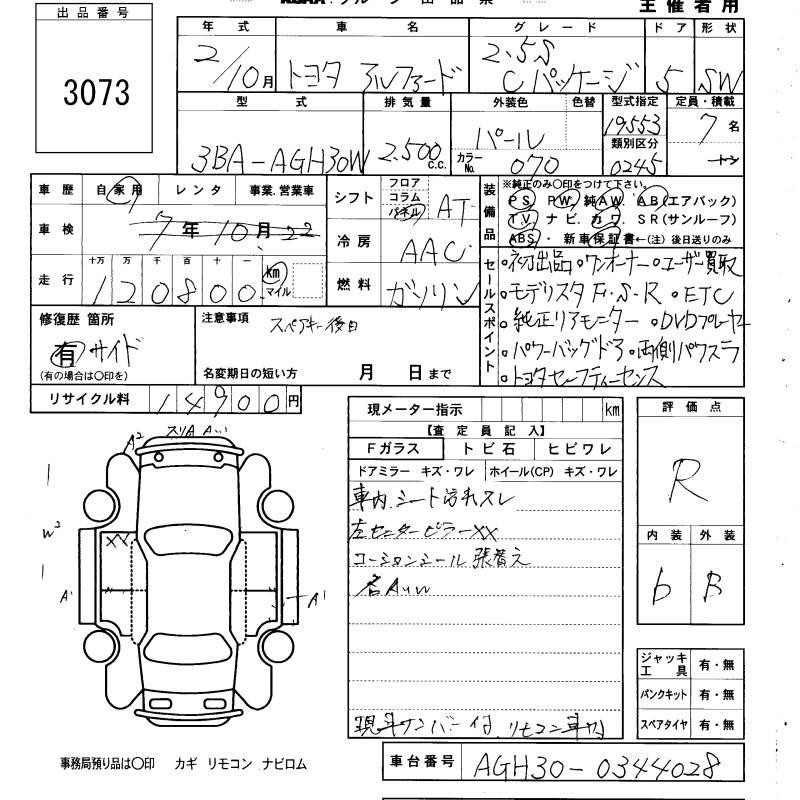 主催者用
出品番号
3073
年式 車名 グレード ドア 形状
2/10月 トヨタ アルファード 2.5S Cパッケージ 5 SW
型式 排気量 外装色 色替 型式指定 定員・積載
3BA-AGH30W 2.500c.c. パール 19553 7名
カラーNo. 070 類別区分 0245 トン
車歴 自家用 レンタ 事業.営業車
車検 7年10月22
走行 十万 万 千 百 十 一
120800 km マイル
シフト フロア コラム パネル AT
冷房 AAC
燃料 ガソリン
装備品 ※純正のみ〇印をつけて下さい。
PS PW 純AW AB(エアバック)
TV ナビ カワ SR(サンルーフ)
ABS・新車保証書←(注)後日送りのみ
セールスポイント
・初出品・ワンオーナー・ユーザー買取
・モデリスタF・S・R・ETC
・純正リアモニター・DVDプレーヤー
・パワーバックドア・両側パワスラ
・トヨタセーフティーセンス
修復歴 箇所
有 サイド
(有の場合は〇印を)
注意事項 スペアキー後日
名変期日の短い方 月 日まで
リサイクル料 14900円
現メーター指示 km
【査定員記入】
Fガラス トビ石 ヒビワレ
ドアミラー キズ・ワレ ホイール(CP) キズ・ワレ
車内シート汚れスレ
左センターピラーXX
コーションシール張替え
各AUW
現斗ナンバー付 リモコン車内
評価点
R
内装 外装
b B
ジャッキ工具 有・無
パンクキット 有・無
スペアタイヤ 有・無
スリA A
A²
W²
XX
A'
A'
事務局預り品は〇印 カギ リモコン ナビロム
車台番号 AGH30-0344028